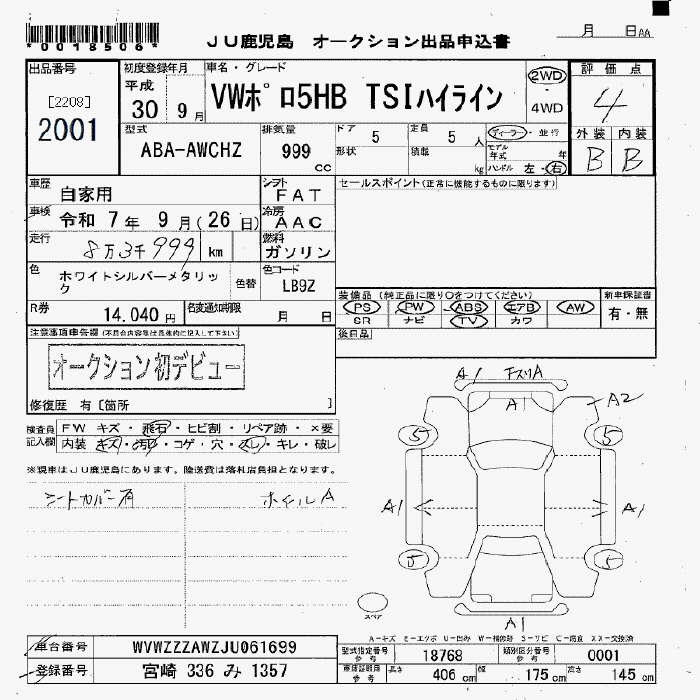 *0018506*
JU鹿児島 オークション出品申込書
月 日AA
出品番号
[2208]
2001
初度登録年月
平成
30 9月
車名・グレード
VWポロ5HB TSIハイライン
2WD
4WD
評価点
4
外装 内装
B B
型式
ABA-AWCHZ
排気量
999
cc
ドア 5
定員 5 人
形状
積載 kg
ディーラー・並行
モデル年式 年
ハンドル 左・右
車歴
自家用
シフト
FAT
車検
令和 7年 9月(26日)
冷房
AAC
走行
8万3千999 km
燃料
ガソリン
色
ホワイトシルバーメタリック
色替
色コード
LB9Z
R券
14.040円
名変通知期限
月 日
セールスポイント(正常に機能するものに限ります)
装備品(純正品に限り○をつけてください)
PS PW ABS エアB AW
SR ナビ TV カワ
新車保証書
有・無
後日品
注意事項申告欄(不具合内容等は具体的に記入して下さい)
オークション初デビュー
修復歴 有[箇所 ]
検査員記入欄
FW キズ・飛石・ヒビ割・リペア跡・×要
内装・キズ・汚れ・コゲ・穴・スレ・キレ・破レ
※現車はJU鹿児島にあります。陸送費は落札店負担となります。
シートカバー有
ホイルA
A1 下スリA
A1
A2
5 5
A1 A1
5 5
スペア
A1
A-キズ E-エクボ U-凹み W-補修跡 S-サビ C-腐食 XX-交換済
車台番号
WVWZZZAWZJU061699
登録番号
宮崎 336 み 1357
型式指定番号
参考
18768
類別区分番号
参考
0001
車検証記載
参考
長さ 406 cm
幅 175 cm
高さ 145 cm